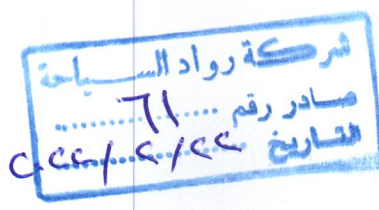 شركة رواد السياحة
صادر رقم ٦١
التاريخ ٢٢/٢/٢٠٢٢